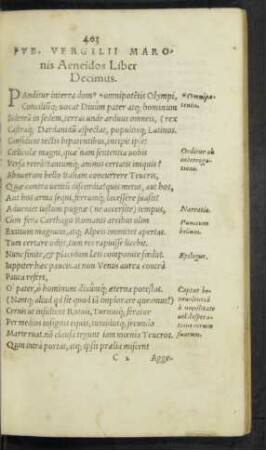 403
PVB. VERGILII MARO-
nis Aeneidos Liber
Decimus.
PAnditur interea domᵒ omnipotētis Olympi,
Conciliūq; uocat Diuûm pater atq; hominum
Siderea in sedem, terras unde arduus omneis, (rex
Castraq; Dardanidū aspectat, populosq; Latinos.
Considunt tectis bipatentibus, incipit ipse:
Coelicolae magni, quae nam sententia uobis
Versa retrò tantumq; animis certatis iniquis?
Abnueram bello Italiam concurrere Teucris,
Quae contra uetitū discordia? quis metus, aut hos,
Aut hos arma sequi, ferrumq; lacessere suasit?
Adueniet iustum pugnae (ne accersite) tempus,
Cum fera Carthago Romanis arcibus olim
Exitium magnum, atq; Alpeis immittet apertas.
Tum certare odijs, tum res rapuisse licebit.
Nunc sinite, & placidum laeti componite foedus.
Iuppiter haec paucis: at non Venus aurea contrà
Pauca refert,
O' pater, ô hominum diuûmq; aeterna potestas.
(Nanq; aliud qd sit quod iā implorare queamus?)
Cernis ut insultent Rutuli, Turnusq; feratur
Per medios insignis equis, tumidusq; secundo
Marte ruat. nō clausa tegunt iam moenia Teucros:
Quin intra portas, atq; ipsis praelia miscent
C 2 Agge-
Omnipo-
tentis.
Orditur ab
interroga-
tione.
Narratio.
Punicum
bellum.
Epilogus.
Captat be-
neuolentiā